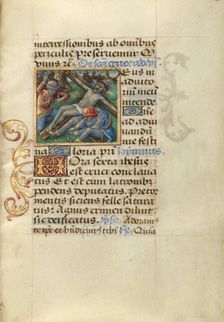 intercessionibus ab omnibus
periculis preservemur
Deus in
adiuto
rium meu
intende
Domine
ad iu
uandu
me festi
na Gloria pri hymnus
Hora sexta iesus
est cruci conclaua
tus Et est cum latronib
pendens deputatus Pretor
mentis sitiens felle satura
tus Agnus crimen diluit
sic deificatus Adoramus
te xpe et bndicimus tibi Quia